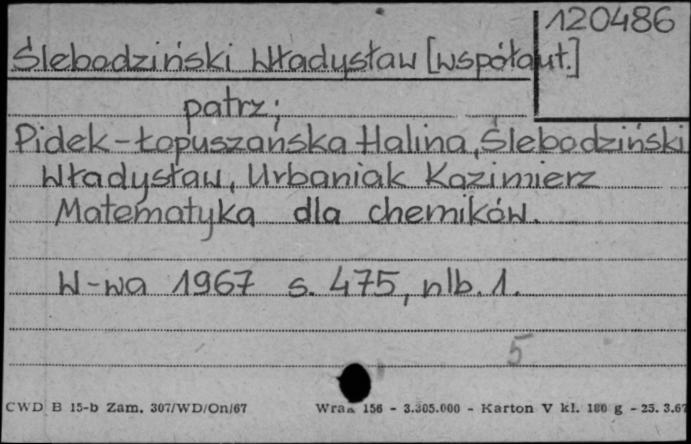 120486
Ślebodziński Władysław [współaut.]
patrz;
Pidek-Łopuszańska Halina, Ślebodziński
Władysław, Urbaniak Kazimierz
Matematyka dla chemików.
W-wa 1967 s. 475, nlb. 1.
5
CWD B 15-b Zam. 307/WD/On/67 - 3.305.000 - Karton V kl. 180 g - 25. 3.67